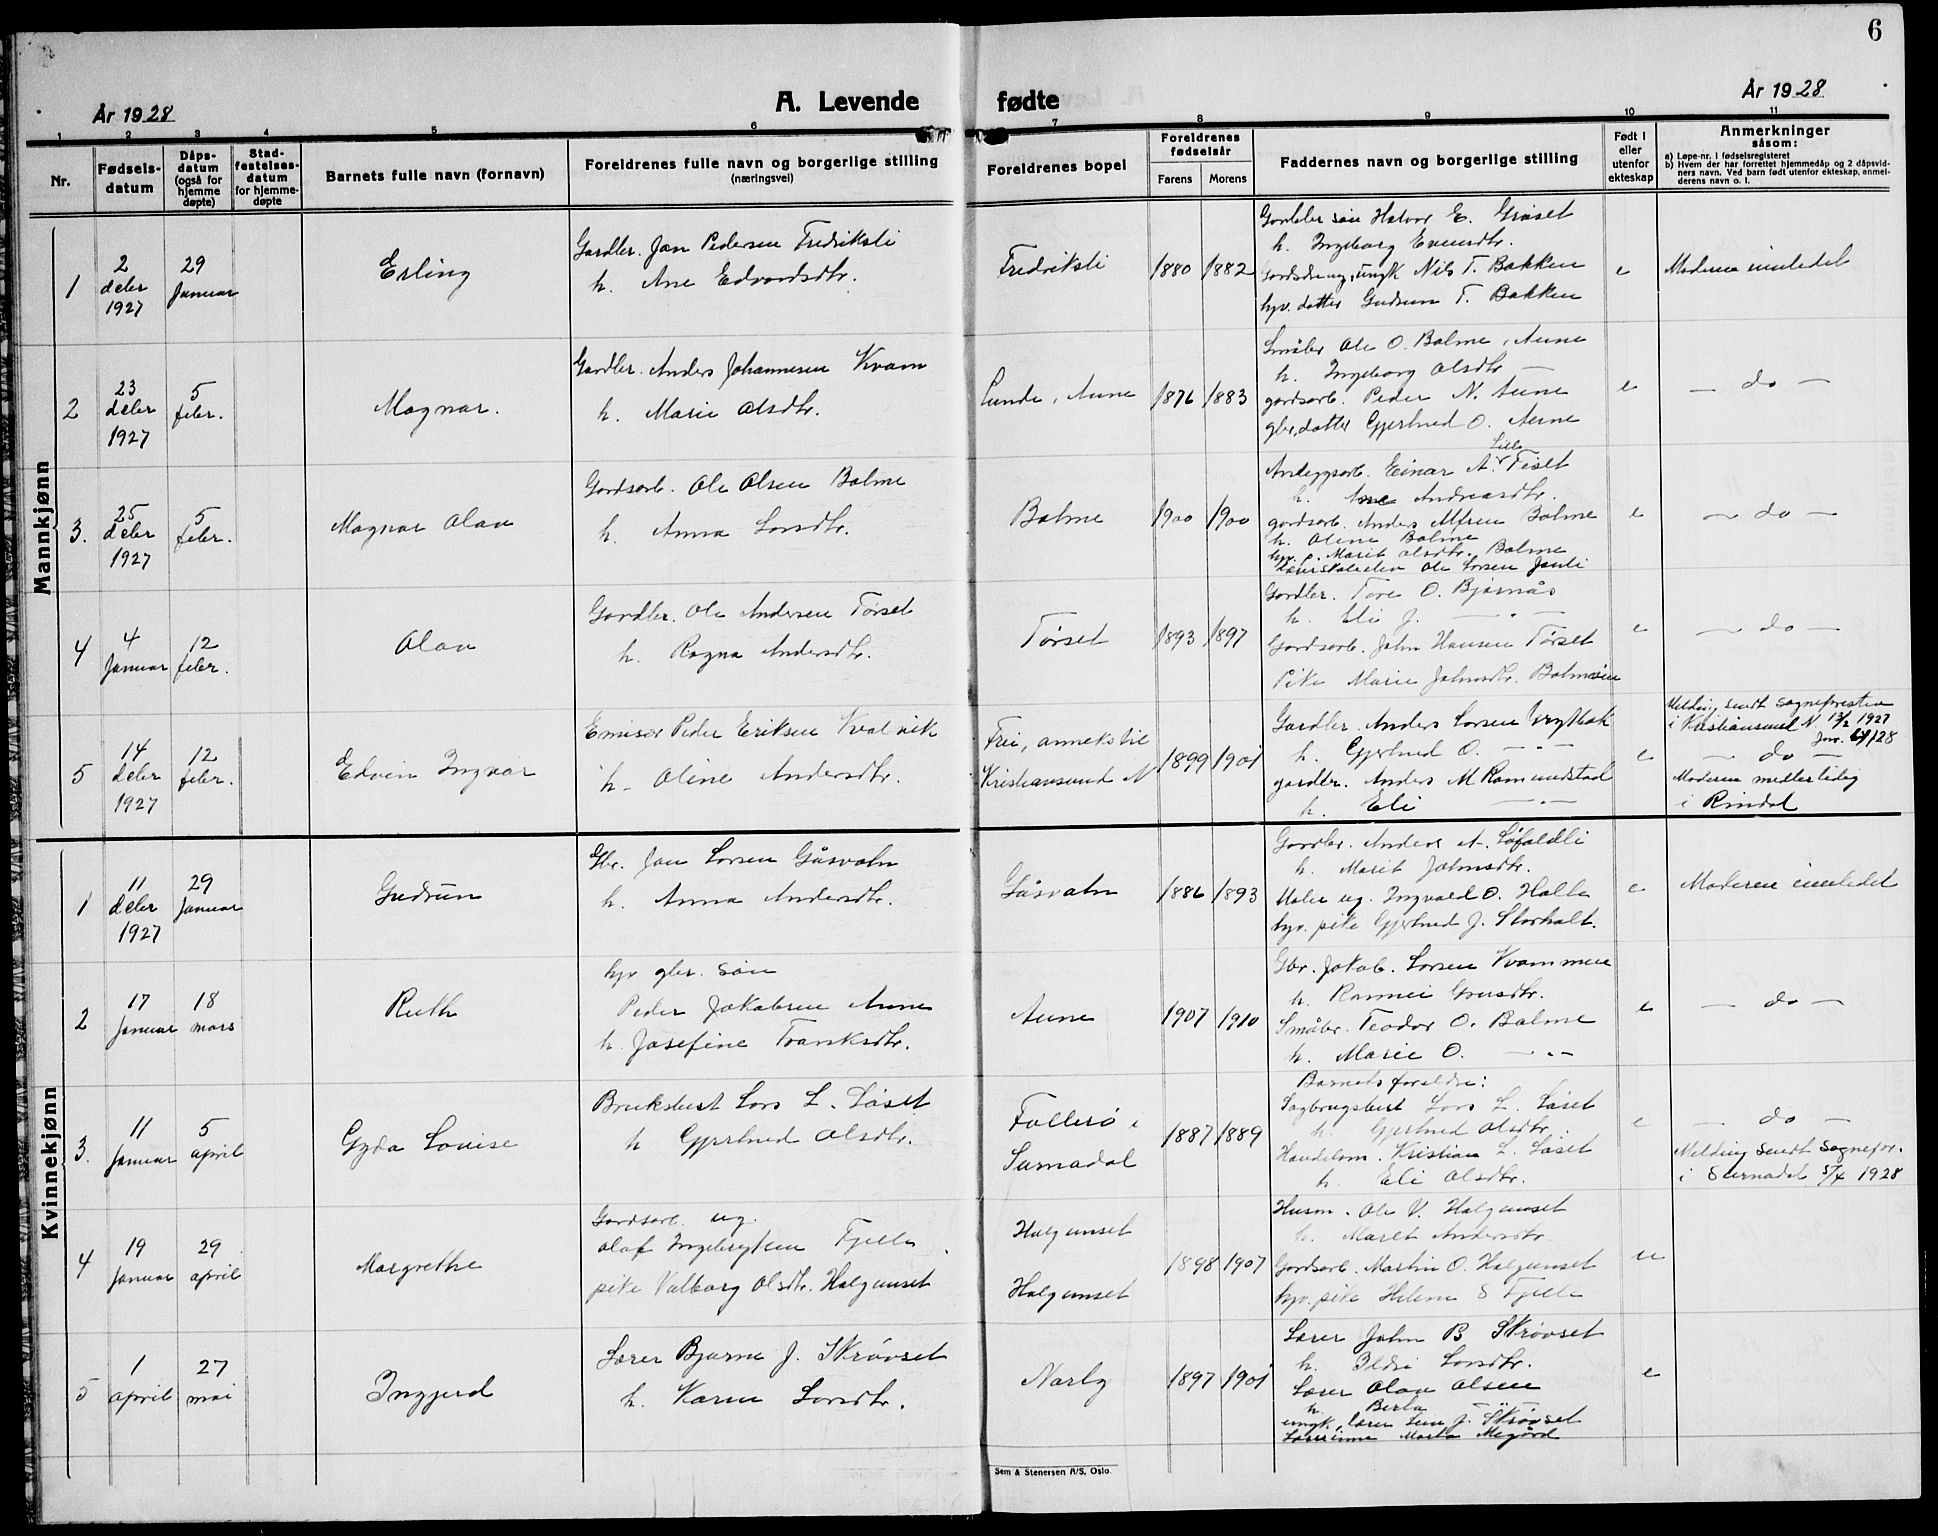 6
År 1928
A. Levende fødte
År 1928
1 2 3 4 5 6 7 8 9 10 11
Nr.
Fødsels-
datum
Dåps-
datum
(også for
hjemme
døpte)
Stad-
festelses-
datum
for hjemme-
døpte
Barnets fulle navn (fornavn)
Foreldrenes fulle navn og borgerlige stilling
(næringsvei)
Foreldrenes bopel
Foreldrenes
fødselsår
Farens Morens
Faddernes navn og borgerlige stilling
Født i
eller
utenfor
ekteskap
Anmerkninger
såsom:
a) Løpe-nr. i fødselsregisteret
b) Hvem der har forrettet hjemmedåp og 2 dåpsvid-
ners navn. Ved barn født utenfor ekteskap, anmel-
derens navn o. l.
Mannkjønn
1
2
deber
1927
29
Januar
Erling
Gardbr. Jon Pedersen Fredriksli
h. Ane Edvardsdtr.
Fredriksli
1880 1882
Gardbr søn Halvor E. Grøset
h. Ingeborg Evensdtr.
Gardsdreng, ungk Nils T. Bakken
hjv. datter Gudrun T. Bakken
e
Moderen innledet
2
23
deber
1927
5
febr.
Magnar.
Gardbr. Anders Johannesen Kvam
h. Marie Olsdtr.
Lunde, Aune
1876 1883
Småbr Ole O. Bolme, Aune
h. Ingeborg Olsdtr —
gardsarb. Peder N. Aune
gbr. datter Gjertrud O. Aune
e
— do —
3.
25
deber
1927
5
febr.
Magnar Olav
Gardsarb. Ole Olsen Bolme
h. Anna Larsdtr.
Bolme
1900 1900
Lille
Anleggsarb. Einar A. Tiset
h. Ane Andreasdtr.
gardsarb. Anders Alfren Bolme
h. Oline Bolme
hjv. p. Marit Olsdtr. Bolme
Lærerskoleelev Ole Larsen Janli
e
— do —
4
4
Januar
12
febr.
Olav
Gardbr. Ole Andersen Tørset
h. Ragna Andersdtr.
Tørset
1893 1897
Gardbr. Tore O. Bjørnås
h. Eli J. — " —
Gardsarb. John Hansen Tørset
Pike Marie Johnsdtr. Bolmøien
e
— do —
5
14
deber
1927
12
febr.
Edvin Ingvar
Emisær Peder Eriksen Kvalvik
h. Oline Andersdtr.
Frei, anneks til
Kristiansund N
1899 1901
Gardbr. Anders Larsen
h. Gjertrud O. — " —
gardbr. Anders M Romundstad
h. Eli — " —
e
Melding sendt sognepresten
i Kristiansund N 13/2 1927
— do —
Moderen midlertidig
i Rindal
Kvinnekjønn
1
11
deber
1927
29
Januar
Gudrun
Gbr. Jon Larsen Gåsvatn
h. Anna Andersdtr.
Gåsvatn
1886 1893
Gardbr. Anders A. Løfaldli
h. Marit Johnsdtr.
Maler ug. Ingvald O. Halle
hjv. pike Gjertrud J. Storholt.
e
Moderen innledet
2
17
Januar
18
mars
Ruth
hjv gbr. søn
Peder Jakobsen Aune
h. Josefine Franksdtr.
Aune
1907 1910
Gbr. Jakob. Larsen Kvammen
h. Rannei Gunsdtr.
Småbr. Teodor O. Bolme
h. Marie O. — " —
e
— do —
3.
11
Januar
5
april
Gyda Lovise
Bruksbest Lars L. Løset
h Gjertrud Olsdtr.
Follerø i
Surnadal
1887 1889
Barnets foreldre:
Sagbruksbest Lars L. Løset
h. Gjertrud Olsdtr.
Handelsm. Kristian L. Løset
h. Eli Olsdtr.
e
— do —
Melding sendt sognepr.
i Surnadal 5/4 1928
4
19
Januar
29
april
Margrethe
Gardsarb. ug.
Olaf Ingebrigtsen Fjelle
pike Valborg Olsdtr. Halgunset
Halgunset
Halgunset
1898 1907
Husm. Ole V. Halgunset
h. Marit Andersdtr.
Gardsarb. Martin O. Halgunset
hjv. pike Helene S Fjelle
u
5
1
april
27
mai
Ingjerd
Lærer Bjarne J. Skrøvset
h. Karen Larsdtr.
Nærby
1897 1901
Lærer John B Skrøvset
h. Ildri Larsdtr.
Lærer Olav Olsen
h. Berta —
ungk. lærer J. Skrøvset
Lærerinne Marta Megård
e
Sem & Stenersen A/S, Oslo.